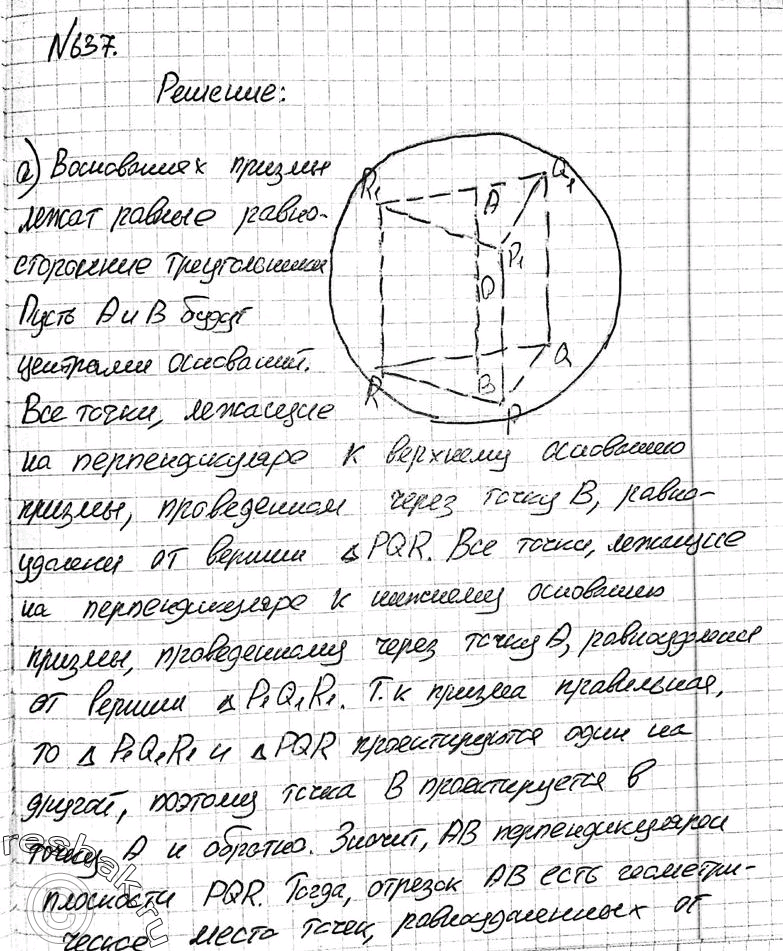 №637.
Решение:
а) В основаниях призмы
лежат равные равно-
сторонние треугольники
Пусть А и В будут
центрами оснований.
Все точки, лежащие
на перпендикуляре к верхнему основанию
призмы, проведенном через точку В, равно-
удалены от вершин △PQR. Все точки, лежащие
на перпендикуляре к нижнему основанию
призмы, проведенному через точку А, равноудалены
от вершин △P₁Q₁R₁. Т.к призма правильная,
то △P₁Q₁R₁ и △PQR проектируются один на
другой, поэтому точка В проектируется в
точку А и обратно. Значит, АВ перпендикулярен
плоскости PQR. Тогда, отрезок АВ есть геометри-
ческое место точек, равноудаленных от
R₁
A
Q₁
P₁
O
R
B
Q
P
reshak.ru